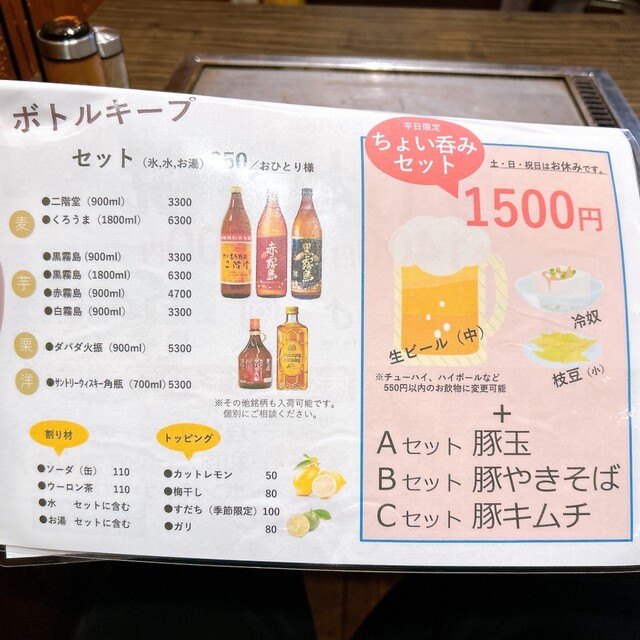 ボトルキープ
セット（氷,水,お湯）350／おひとり様
麦
●二階堂（900ml） 3300
●くろうま（1800ml） 6300
芋
●黒霧島（900ml） 3300
●黒霧島（1800ml） 6300
●赤霧島（900ml） 4700
●白霧島（900ml） 3300
栗
●ダバダ火振（900ml） 5300
洋
●サントリーウィスキー角瓶（700ml）5300
二階堂
赤霧島
黒霧島
※その他銘柄も入荷可能です。
個別にご相談ください。
割り材
●ソーダ（缶） 110
●ウーロン茶 110
●水 セットに含む
●お湯 セットに含む
トッピング
●カットレモン 50
●梅干し 80
●すだち（季節限定）100
●ガリ 80
平日限定
ちょい呑み
セット
土・日・祝日はお休みです。
1500円
生ビール（中）
冷奴
枝豆（小）
※チューハイ、ハイボールなど
550円以内のお飲物に変更可能
＋
Aセット 豚玉
Bセット 豚やきそば
Cセット 豚キムチ